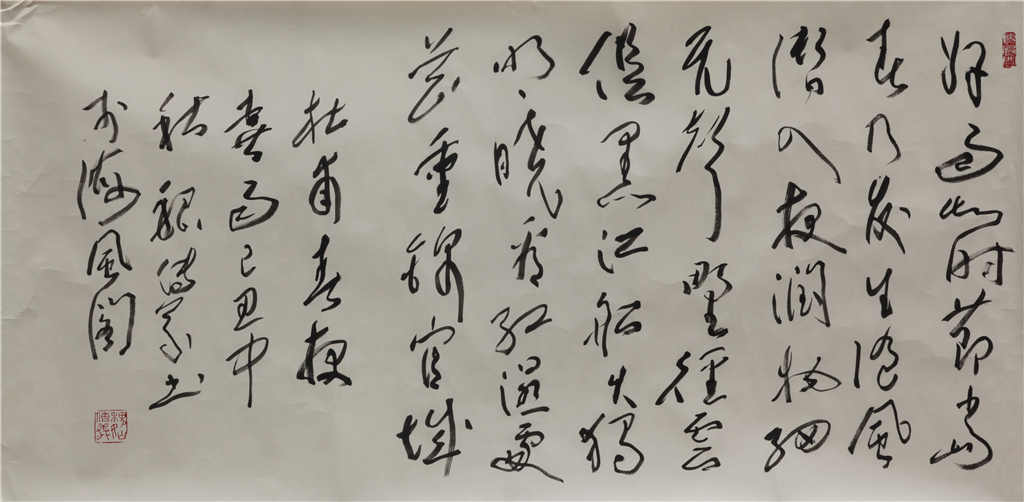 好雨知时節當
春乃發生隨風
潛入夜潤物細
无聲野徑雲
俱黑江船火獨
明曉看紅濕處
花重錦官城
杜甫春夜
喜雨己丑中
秋魏傳義書
於海風閣